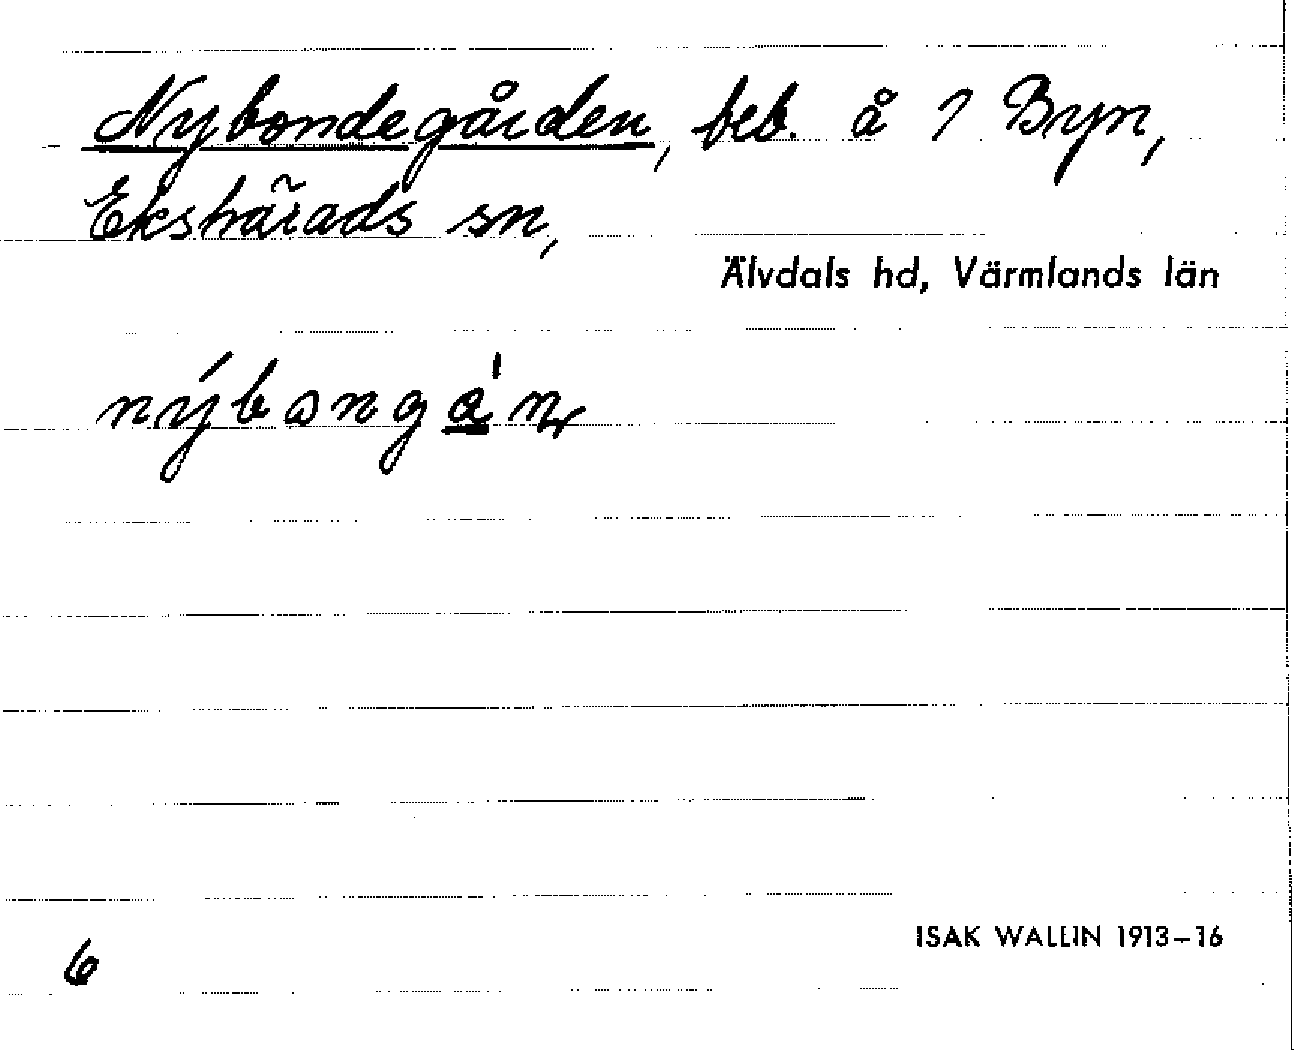 Nybondegården, beb. å 1 Byn,
Ekshärads sn,
Älvdals hd, Värmlands län
nýbɷnga̲̍ɳ
ISAK WALLIN 1913–16
6